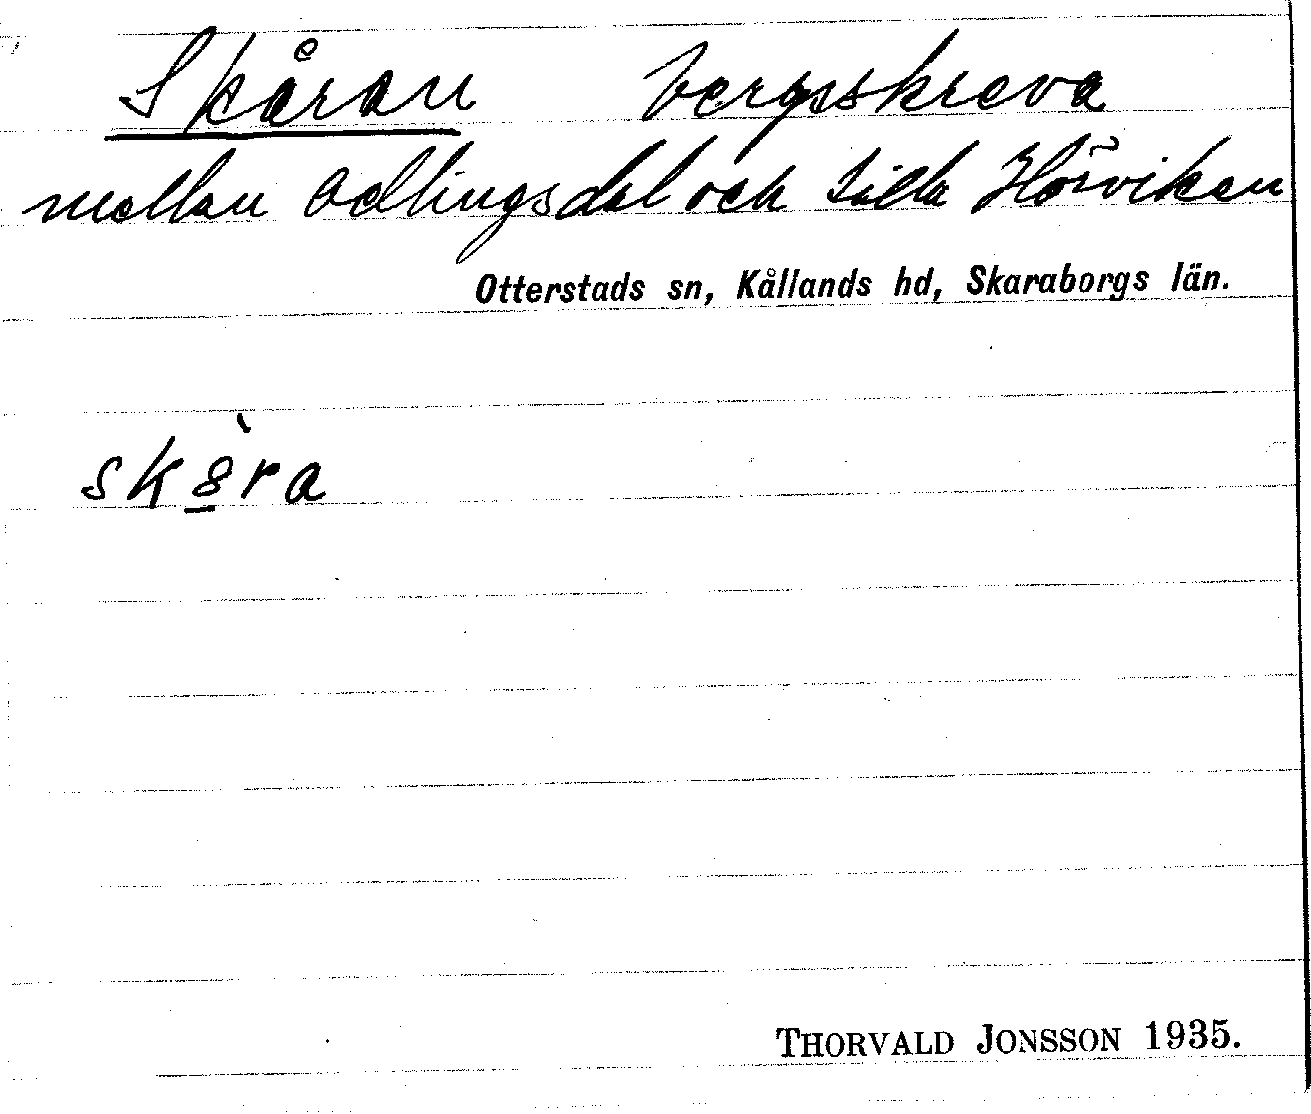 Skåran bergsskreva
mellan Odlingsdal och Lilla Hörviken
Otterstads sn, Kållands hd, Skaraborgs län.
sk8̲̀ra
THORVALD JONSSON 1935.